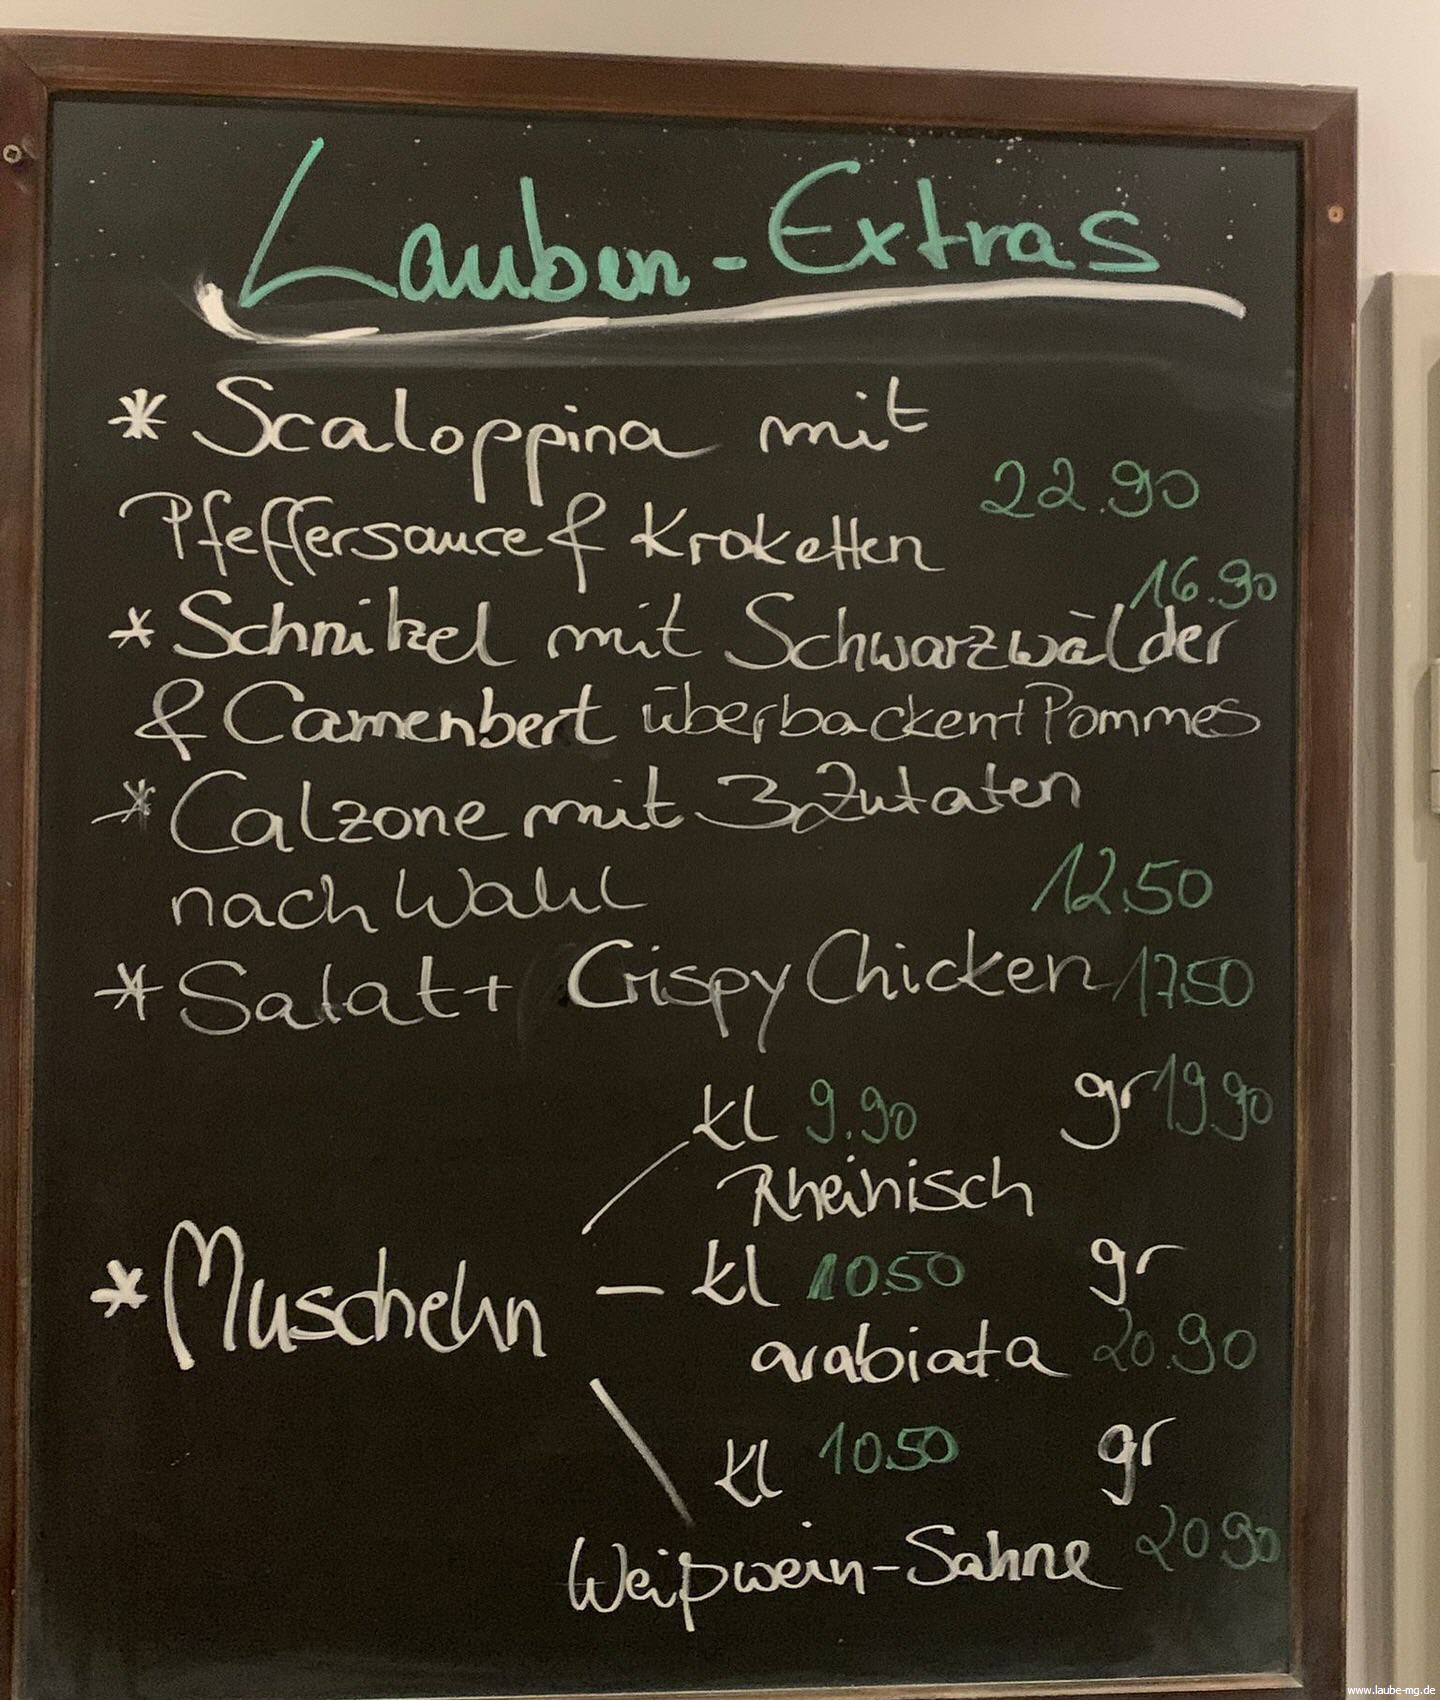 Lauben-Extras
* Scaloppina mit
22.90
Pfeffersauce & Kroketten
16.90
* Schnitzel mit Schwarzwälder
& Camenbert überbacken + Pommes
* Calzone mit 3 Zutaten
nach Wahl 12.50
* Salat + Crispy Chicken 17.50
kl 9.90 gr 19.90
Rheinisch
* Muscheln - kl 10.50 gr
arabiata 20.90
kl 10.50 gr
Weißwein-Sahne 20.90
www.laube-mg.de